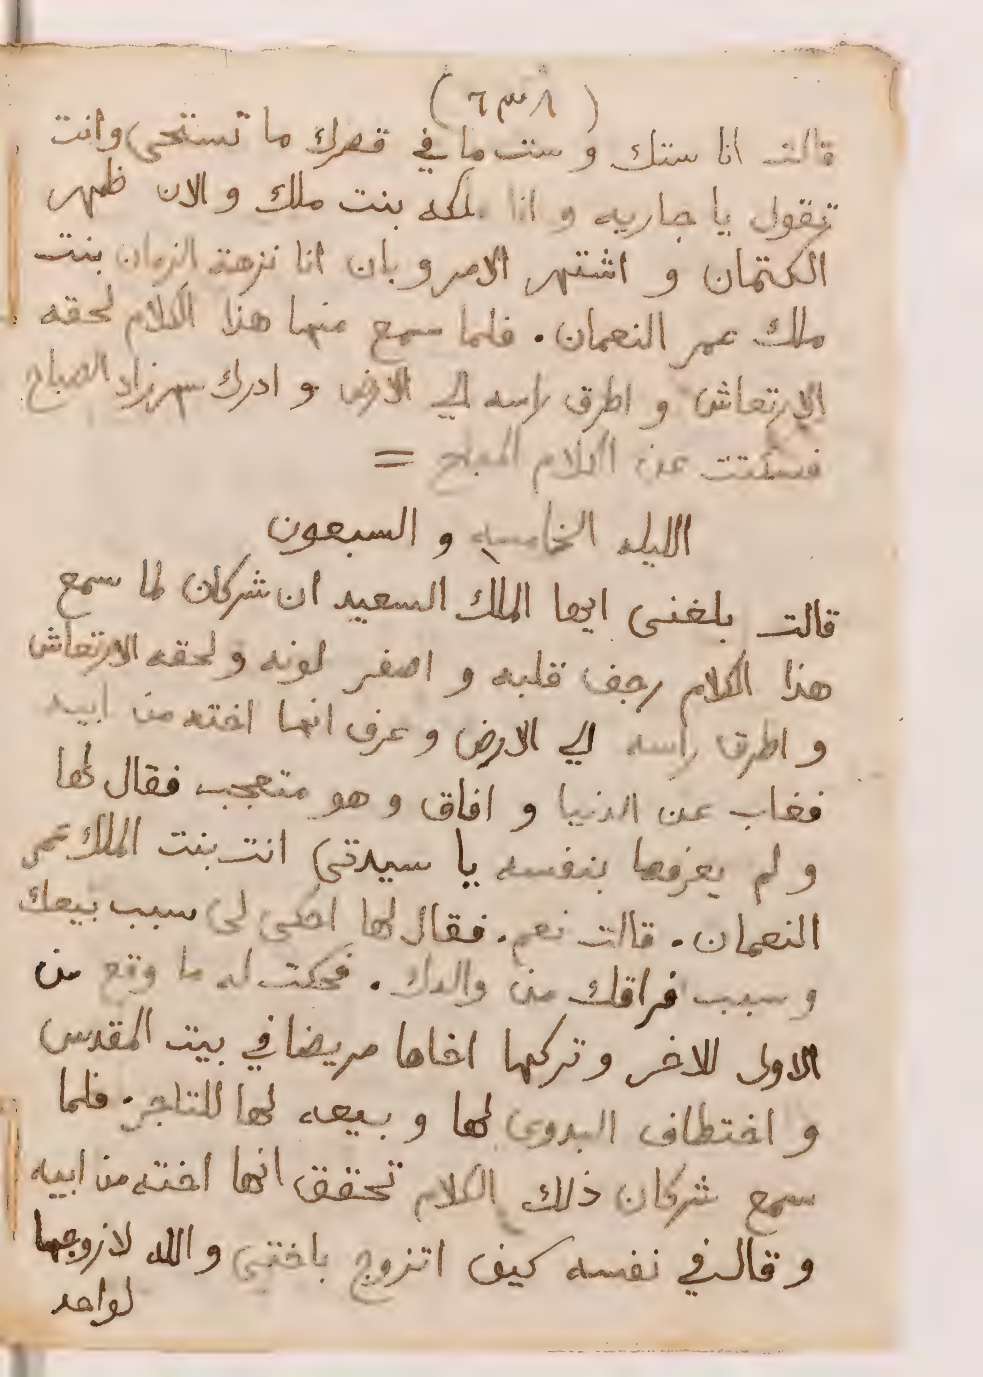 (٨٣٦)
قالت انا ستك و ست ما في قصرك ما تستحي وانت
تقول يا جاريه و انا ملكه بنت ملك و الان ظهر
الكتمان و اشتهر الامر و بان انا نزهة الزمان بنت
ملك عمر النعمان. فلما سمع منها هذا الكلام لحقه
الارتعاش و اطرق راسه الي الارض و ادرك شهرزاد الصباح
فسكتت عن الكلام المباح =
الليله الخامسه و السبعون
قالت بلغنى ايها الملك السعيد ان شركان لما سمع
هذا الكلام رجف قلبه و اصفر لونه و لحقه الارتعاش
و اطرق راسه الي الارض و عرف انها اخته من ابيه
فغاب عن الدنيا و افاق و هو متعجب فقال لها
و لم يعرفها بنفسه يا سيدتي انت بنت الملك عمر
النعمان. قالت نعم. فقال لها احكى لى سبب بيعك
و سبب فراقك من والدك. فحكت له ما وقع من
الاول للاخر و تركها اخاها مريضا في بيت المقدس
و اختطاف البدوى لها و بيعه لها للتاجر. فلما
سمع شركان ذلك الكلام تحقق انها اخته من ابيه
و قال في نفسه كيف اتزوج باختى و الله لازوجها
لواحد